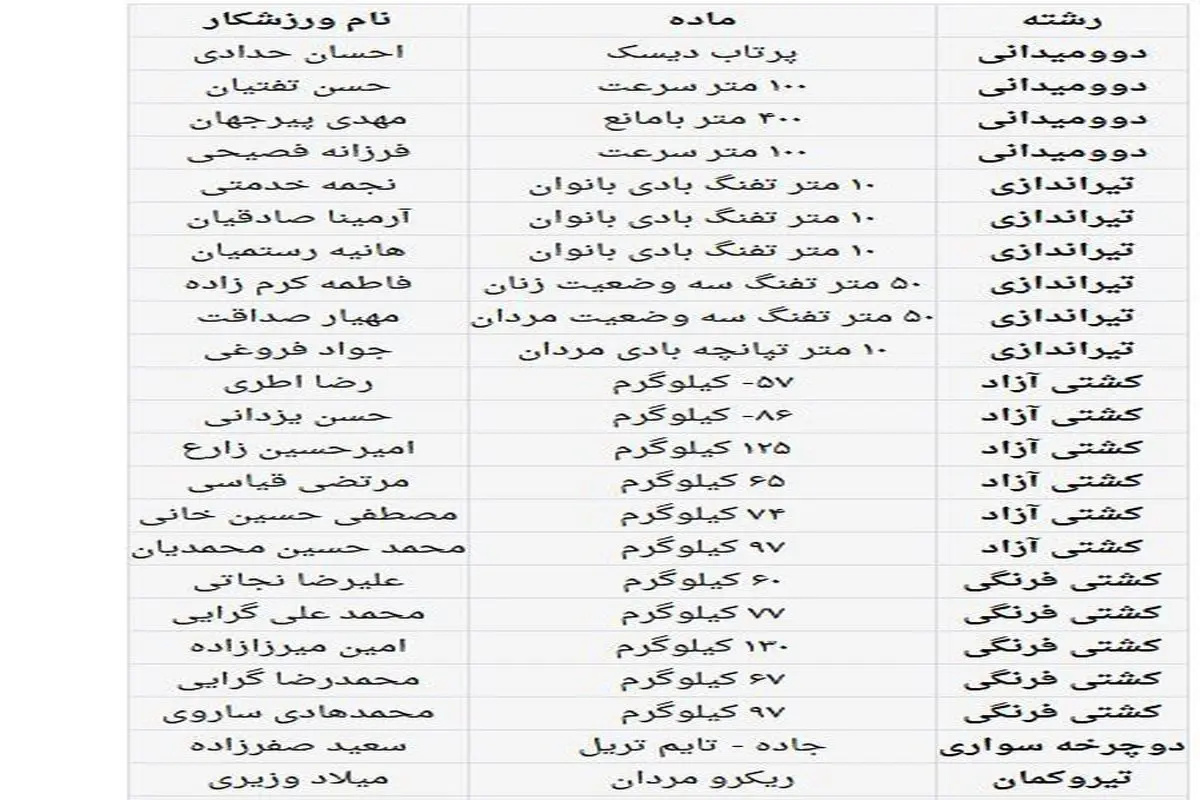 رشته ماده نام ورزشکار
دوومیدانی پرتاب دیسک احسان حدادی
دوومیدانی ۱۰۰ متر سرعت حسن تفتیان
دوومیدانی ۴۰۰ متر بامانع مهدی پیرجهان
دوومیدانی ۱۰۰ متر سرعت فرزانه فصیحی
تیراندازی ۱۰ متر تفنگ بادی بانوان نجمه خدمتی
تیراندازی ۱۰ متر تفنگ بادی بانوان آرمینا صادقیان
تیراندازی ۱۰ متر تفنگ بادی بانوان هانیه رستمیان
تیراندازی ۵۰ متر تفنگ سه وضعیت زنان فاطمه کرم زاده
تیراندازی ۵۰ متر تفنگ سه وضعیت مردان مهیار صداقت
تیراندازی ۱۰ متر تپانچه بادی مردان جواد فروغی
کشتی آزاد ۵۷- کیلوگرم رضا اطری
کشتی آزاد ۸۶- کیلوگرم حسن یزدانی
کشتی آزاد ۱۲۵ کیلوگرم امیرحسین زارع
کشتی آزاد ۶۵ کیلوگرم مرتضی قیاسی
کشتی آزاد ۷۴ کیلوگرم مصطفی حسین خانی
کشتی آزاد ۹۷ کیلوگرم محمد حسین محمدیان
کشتی فرنگی ۶۰ کیلوگرم علیرضا نجاتی
کشتی فرنگی ۷۷ کیلوگرم محمد علی گرایی
کشتی فرنگی ۱۳۰ کیلوگرم امین میرزازاده
کشتی فرنگی ۶۷ کیلوگرم محمدرضا گرایی
کشتی فرنگی ۹۷ کیلوگرم محمدهادی ساروی
دوچرخه سواری جاده - تایم تریل سعید صفرزاده
تیروکمان ریکرو مردان میلاد وزیری